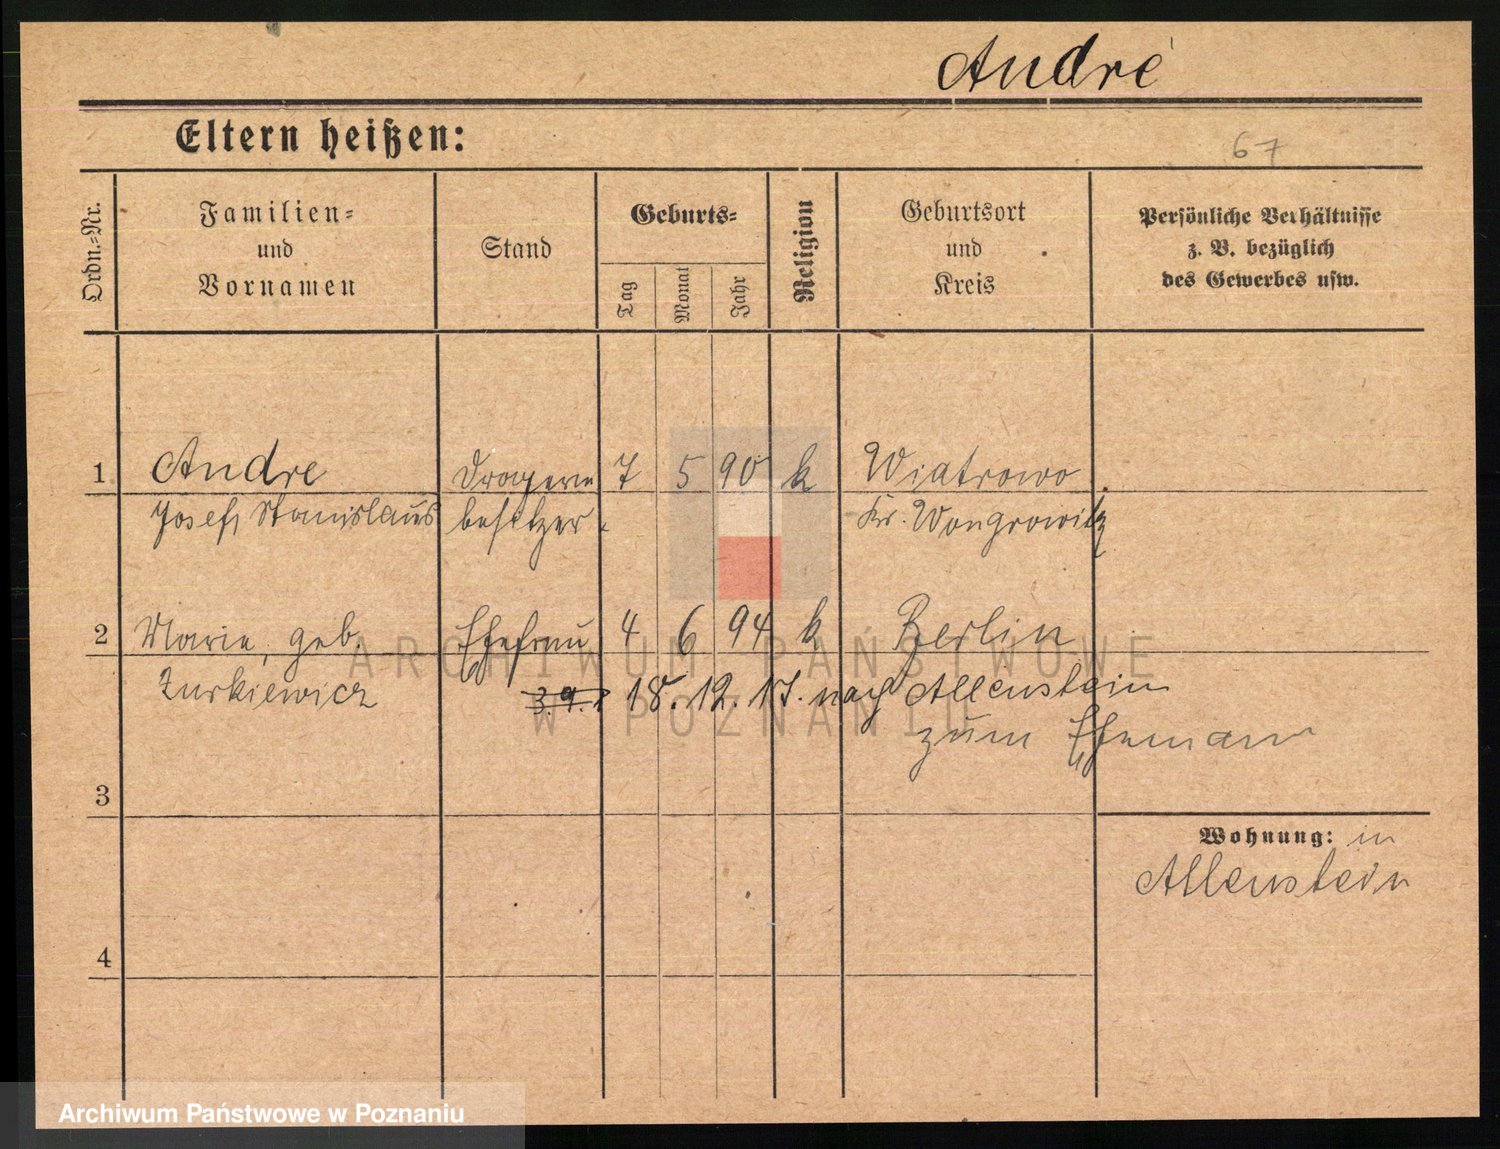 André
Eltern heißen:
67
Ordn.-Nr.
Familien-
und
Vornamen
Stand
Geburts-
Tag
Monat
Jahr
Religion
Geburtsort
und
Kreis
Persönliche Verhältnisse
z. B. bezüglich
des Gewerbes usw.
1 Andre Drogerie 7 5 90 k Wiatrowo
Josef, Stanislaus besitzer. Kr. Wongrowitz
2 Marie, geb. Ehefrau 4 6 94 k Berlin
Zurkiewicz 3.9. 18. 12. 17. nach Allenstein
zum Ehemann
3
Wohnung: in
Allenstein
4
ARCHIWUM PAŃSTWOWE
W POZNANIU
Archiwum Państwowe w Poznaniu